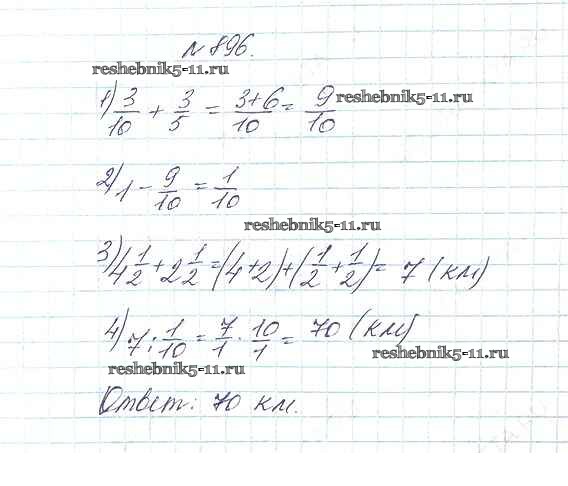 №896.
reshebnik5-11.ru
1) 3/10 + 3/5 = 3+6/10 = 9/10 reshebnik5-11.ru
2) 1 - 9/10 = 1/10
reshebnik5-11.ru
3) 4 1/2 + 2 1/2 = (4+2)+(1/2+1/2) = 7 (км)
4) 7 : 1/10 = 7/1 · 10/1 = 70 (км)
reshebnik5-11.ru
reshebnik5-11.ru
Ответ: 70 км.